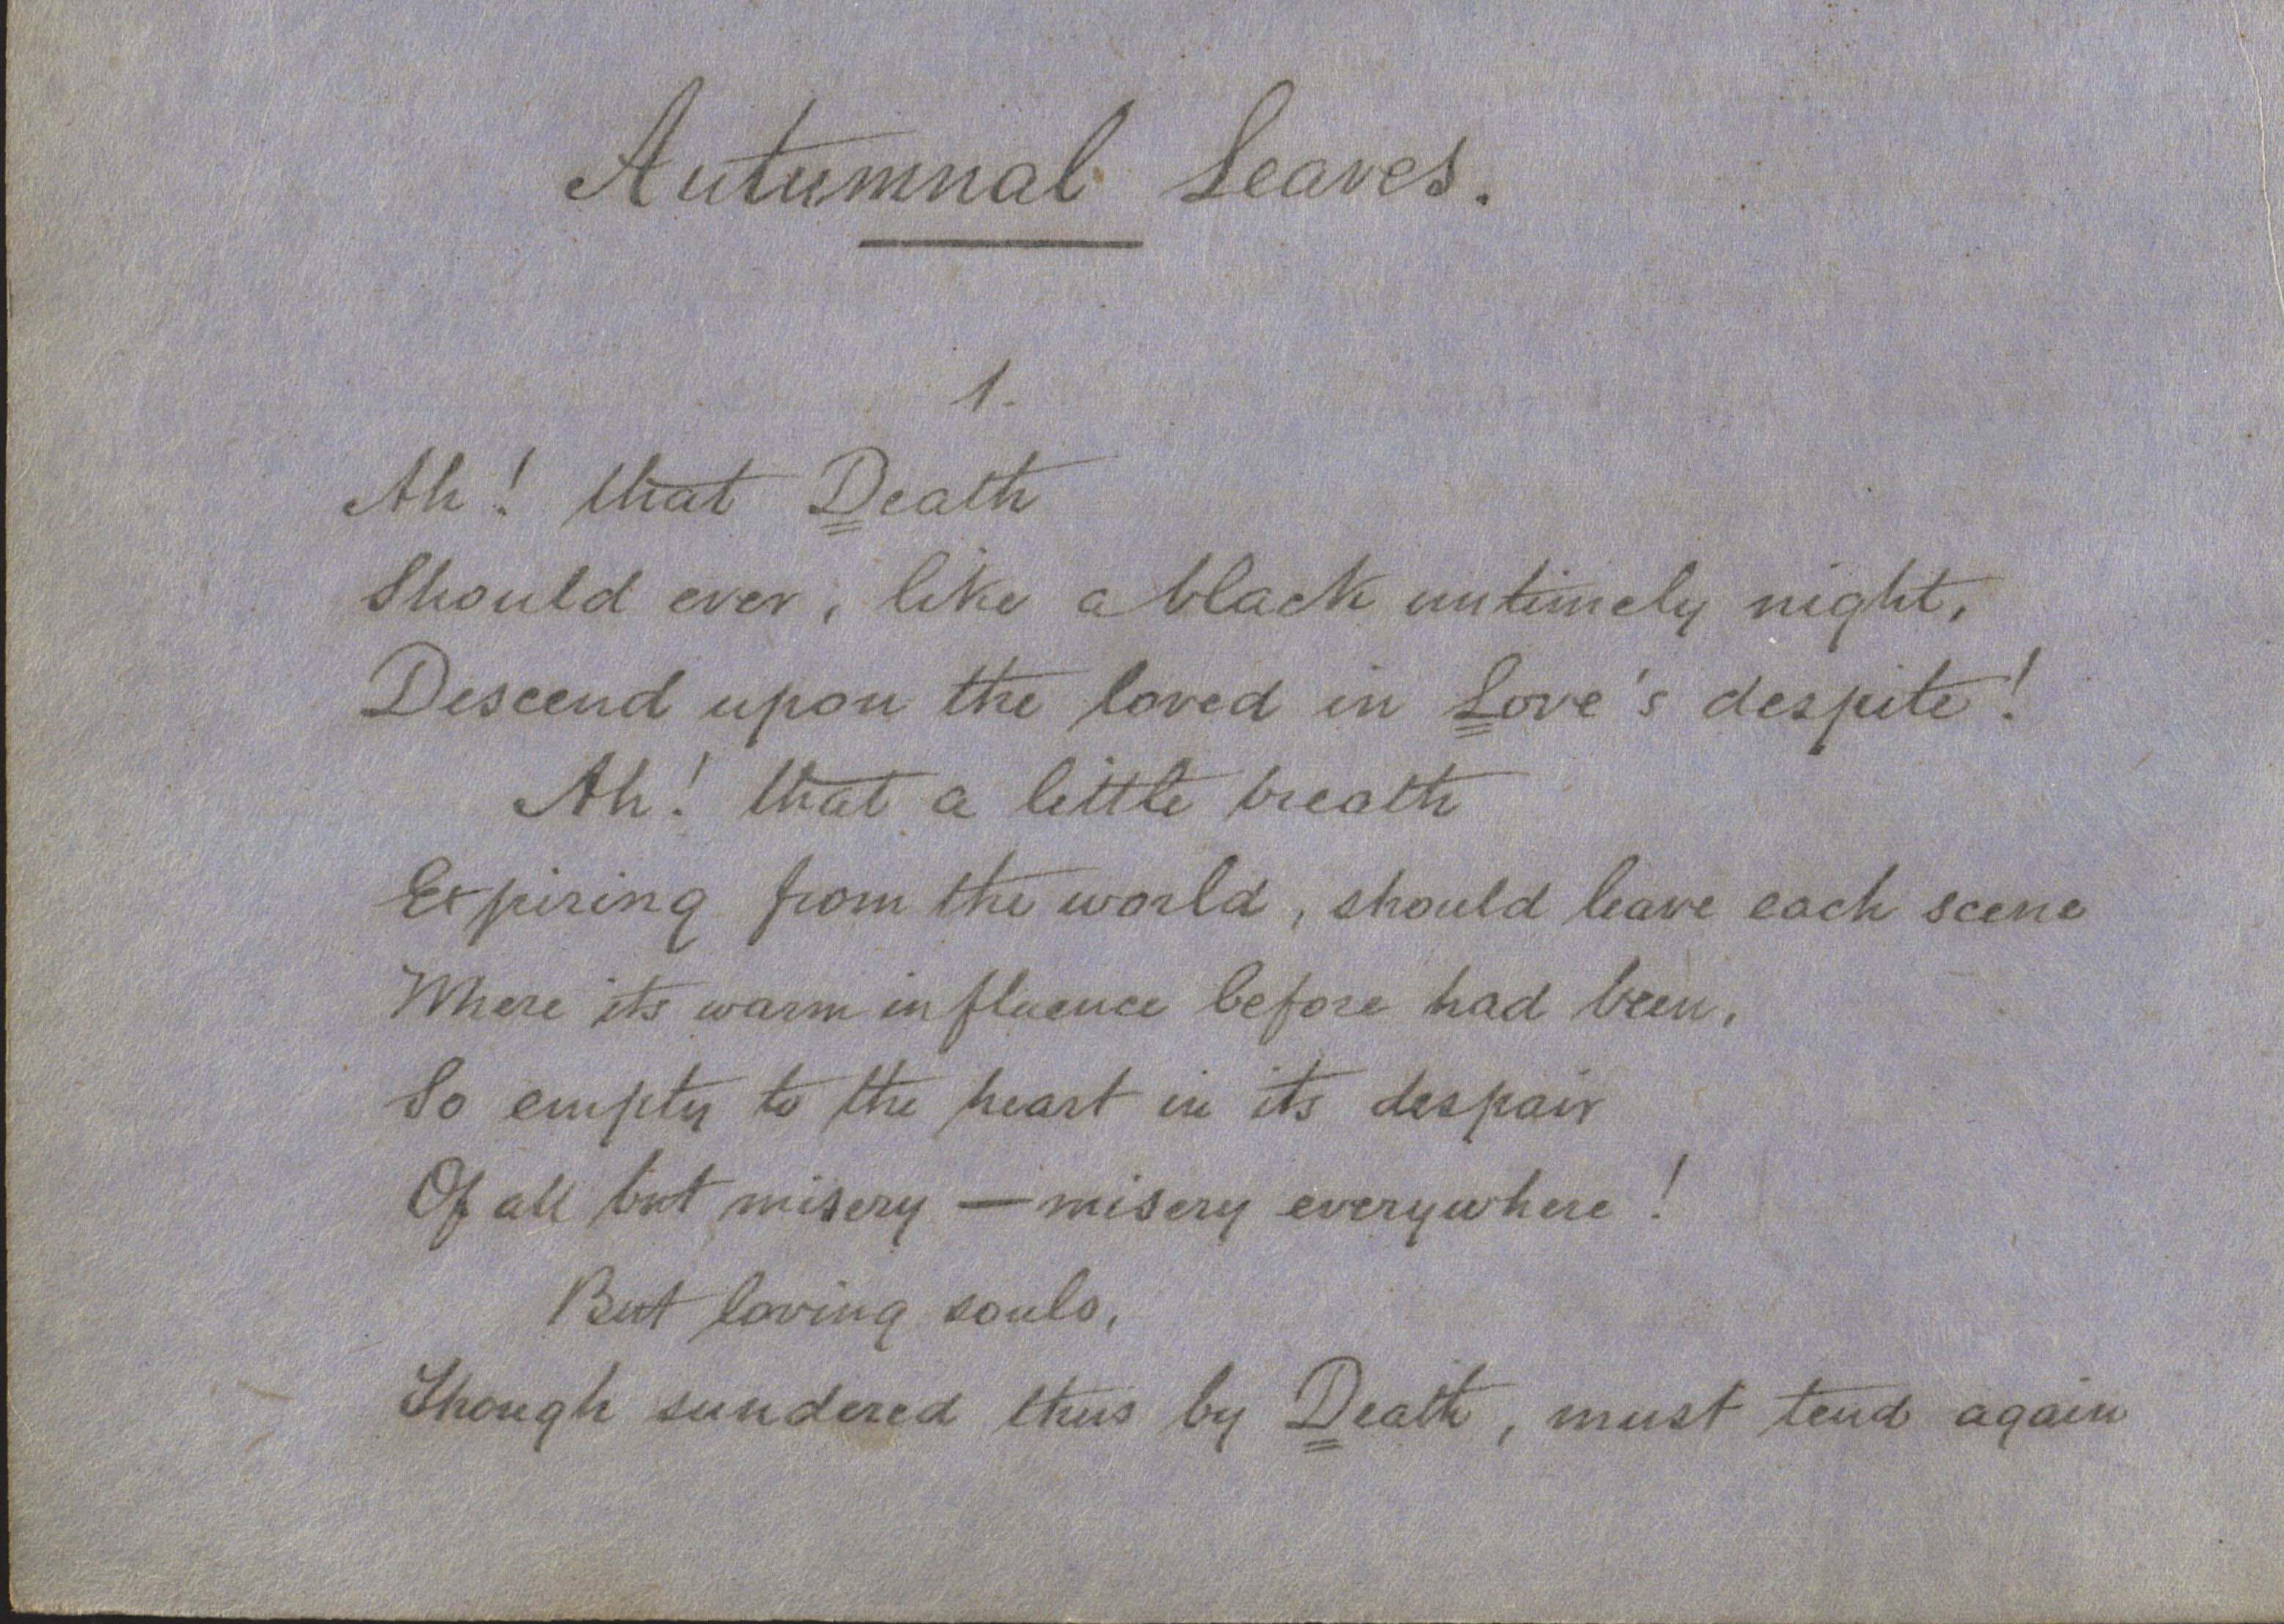 Autumnal Leaves.
1.
Ah! that Death
Should ever, like a black untimely night,
Descend upon the loved in Love's despite!
Ah! that a little breath
Expiring from the world, should leave each scene
Where its warm influence before had been,
So empty to the heart in its despair
Of all but misery — misery everywhere!
But loving souls,
Though sundered thus by Death, must tend again